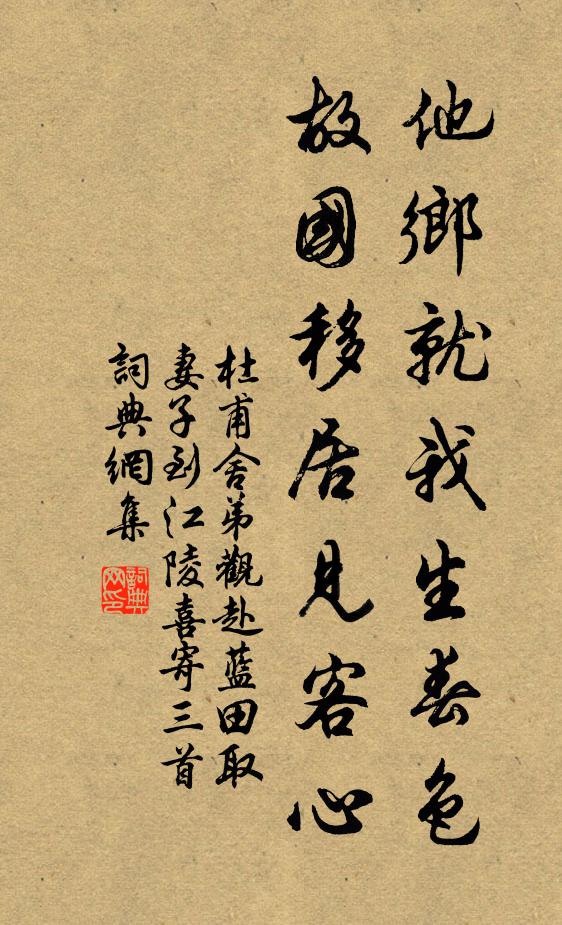 他鄉就我生春色
故國移居見客心
杜甫舍弟觀赴藍田取
妻子到江陵喜寄三首
詞典網集
詞典
网印